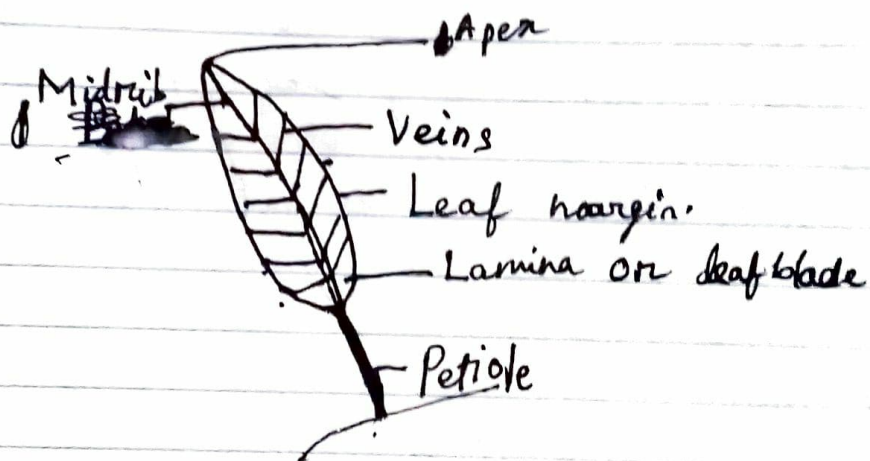 Apex
Midrib
Veins
Leaf margin.
Lamina or leaf blade
Petiole